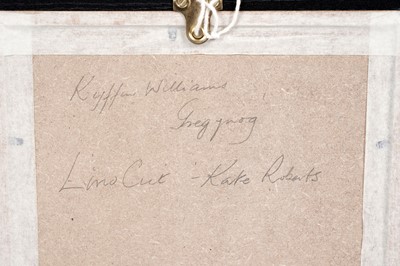 Kyffin Williams
Gregynog
Lino Cut - Kate Roberts